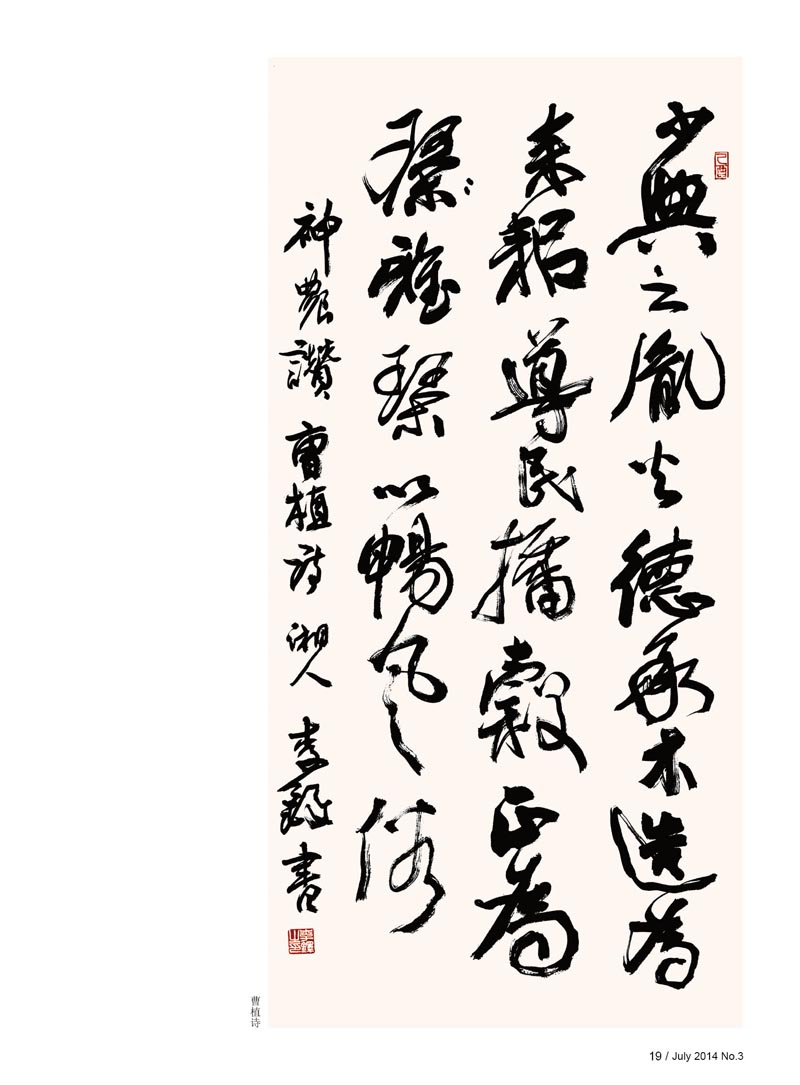 少典之胤火德承木造為
耒耜導民播穀正為
雅琴以暢風俗
神農讚 曹植詩 湘人 李鐸書
曹植诗
19 / July 2014 No.3